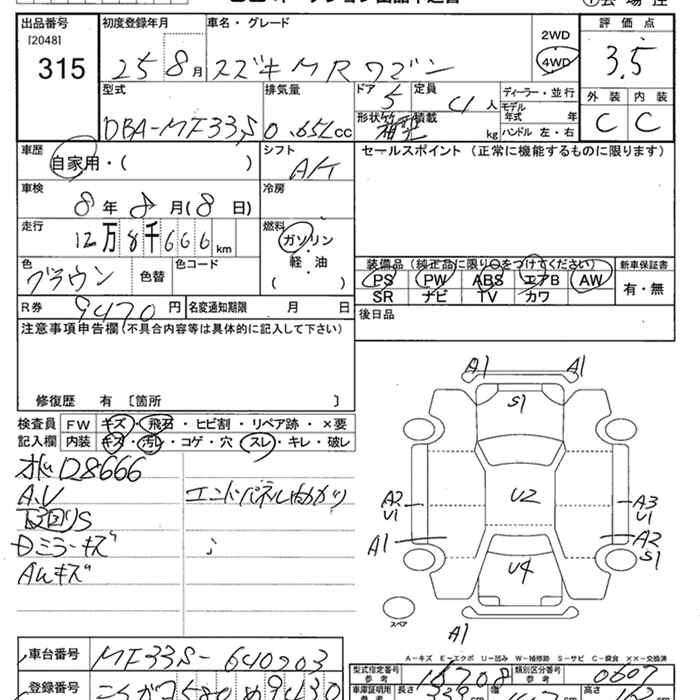 出品番号 初度登録年月 車名・グレード 評価点
[2048]
315 25 8月 スズキ MRワゴン 2WD 4WD 3.5
型式 排気量 ドア 定員 ディーラー・並行 外装 内装
DBA-MF33S 0.65L cc 5 4人 モデル年式 年 C C
形状 箱型 積載 kg ハンドル 左・右
車歴 シフト セールスポイント (正常に機能するものに限ります)
自家用・( ) A/T
車検 冷房
8年 8月(8日)
走行 燃料
12万8千666km ガソリン
軽・油
( )
色 色替 色コード 装備品 (純正品に限り○をつけてください) 新車保証書
ブラウン PS PW ABS エアB AW 有・無
SR ナビ TV カワ
R券 9470円 名変通知期限 月 日 後日品
注意事項申告欄 (不具合内容等は具体的に記入して下さい)
修復歴 有 [箇所 ]
検査員 FW キズ・飛石・ヒビ割・リペア跡・×要
記入欄 内装 キズ・汚レ・コゲ・穴・スレ・キレ・破レ
128666
A.V エンドパネル
下回りS
Dミラーキズ
AWキズ
A1 A1
S1
U2
A2 A3
U1 U1
A1 A2
S1
U4
スペア
A1
A-キズ E-エクボ U-凹み W-補修跡 S-サビ C-腐食 ××-交換済
車台番号 MF33S-640903 型式指定番号 参考 16708 類別区分番号 参考 0607
登録番号 580 9430 車庫証明用 参考 長さ 339 幅 147 高さ